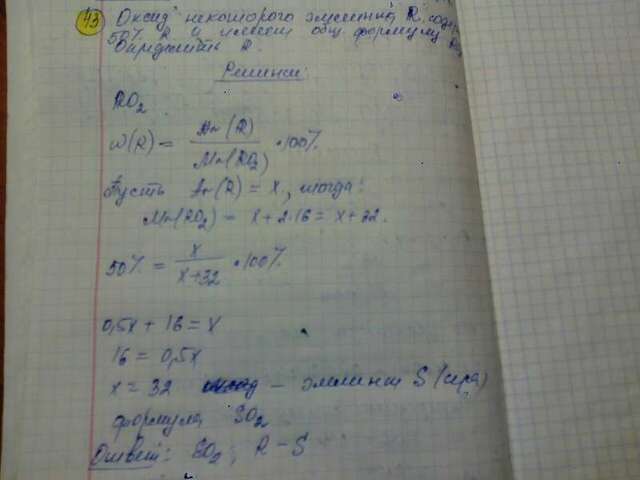 43 Оксид некоторого элемента R содер
50% R и имеет общ. формулу RO₂
Определить R.
Решение:
RO₂
w(R) = Ar(R) / Mr(RO₂) · 100%
Пусть Ar(R) = x, тогда:
Mr(RO₂) = x + 2·16 = x + 32.
50% = x / x+32 · 100%
0,5x + 16 = x
16 = 0,5x
x = 32 – элемент S (сера)
формула SO₂
Ответ: SO₂, R – S